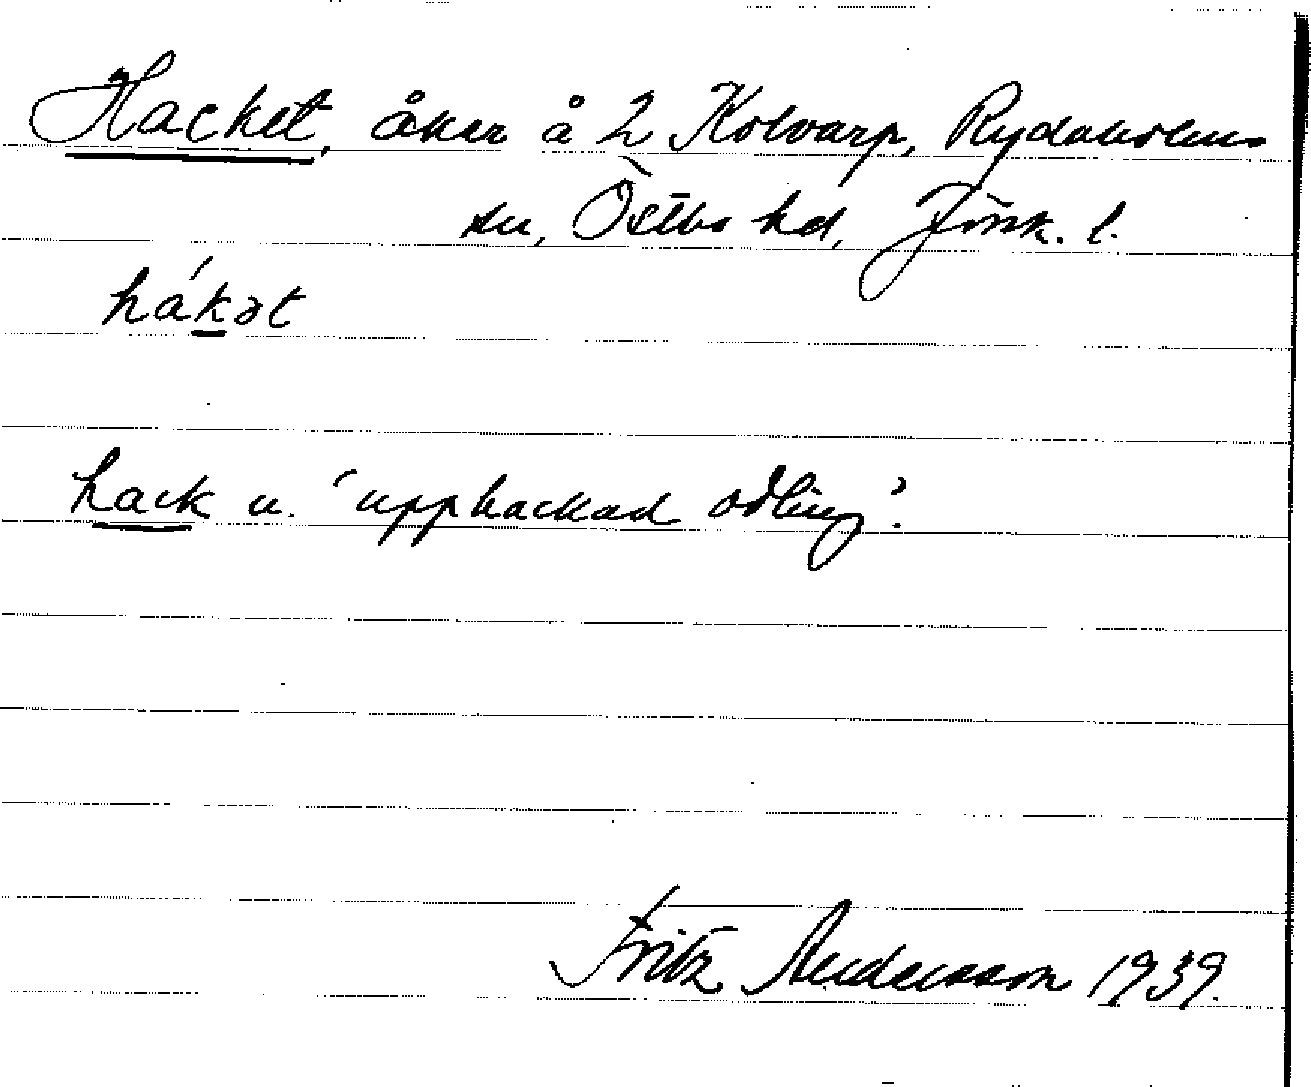 Hacket, åker å 2 Kolvarp, Rydaholms
sn, Östbo hd, Jönk. l.
hák̲ət
hack n. 'upphackad odling'.
Fritz Andersson 1939.